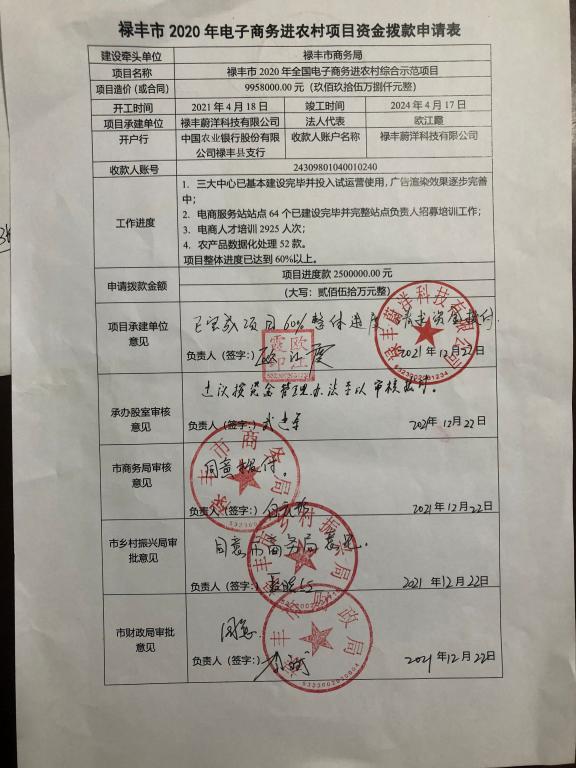 禄丰市 2020 年电子商务进农村项目资金拨款申请表
建设牵头单位 禄丰市商务局
项目名称 禄丰市 2020 年全国电子商务进农村综合示范项目
项目造价（或合同） 9958000.00 元（玖佰玖拾伍万捌仟元整）
开工时间 2021 年 4 月 18 日 竣工时间 2024 年 4 月 17 日
项目承建单位 禄丰蔚洋科技有限公司 法人代表 欧江霞
开户行 中国农业银行股份有限公司禄丰县支行 收款人账户名称 禄丰蔚洋科技有限公司
收款人账号 24309801040010240
工作进度
1. 三大中心已基本建设完毕并投入试运营使用，广告渲染效果逐步完善
中；
2. 电商服务站站点 64 个已建设完毕并完整站点负责人招募培训工作；
3. 电商人才培训 2925 人次；
4. 农产品数据化处理 52 款。
项目整体进度已达到 60%以上。
申请拨款金额 项目进度款 2500000.00 元
（大写：贰佰伍拾万元整）
项目承建单位意见
已完成项目60%整体进度 资金拨付.
负责人（签字：） 2021年12月22日
欧江霞印
禄丰蔚洋科技有限公司
承办股室审核意见
建议按资金管理办法予以审核拨付.
负责人（签字：） 2021年12月22日
市商务局审核意见
同意拨付.
负责人（签字：） 2021年12月22日
禄丰市商务局
市乡村振兴局审批意见
同意市商务局意见.
负责人（签字：） 2021年12月22日
禄丰市乡村振兴局
市财政局审批意见
同意.
负责人（签字：） 2021年12月22日
禄丰市财政局